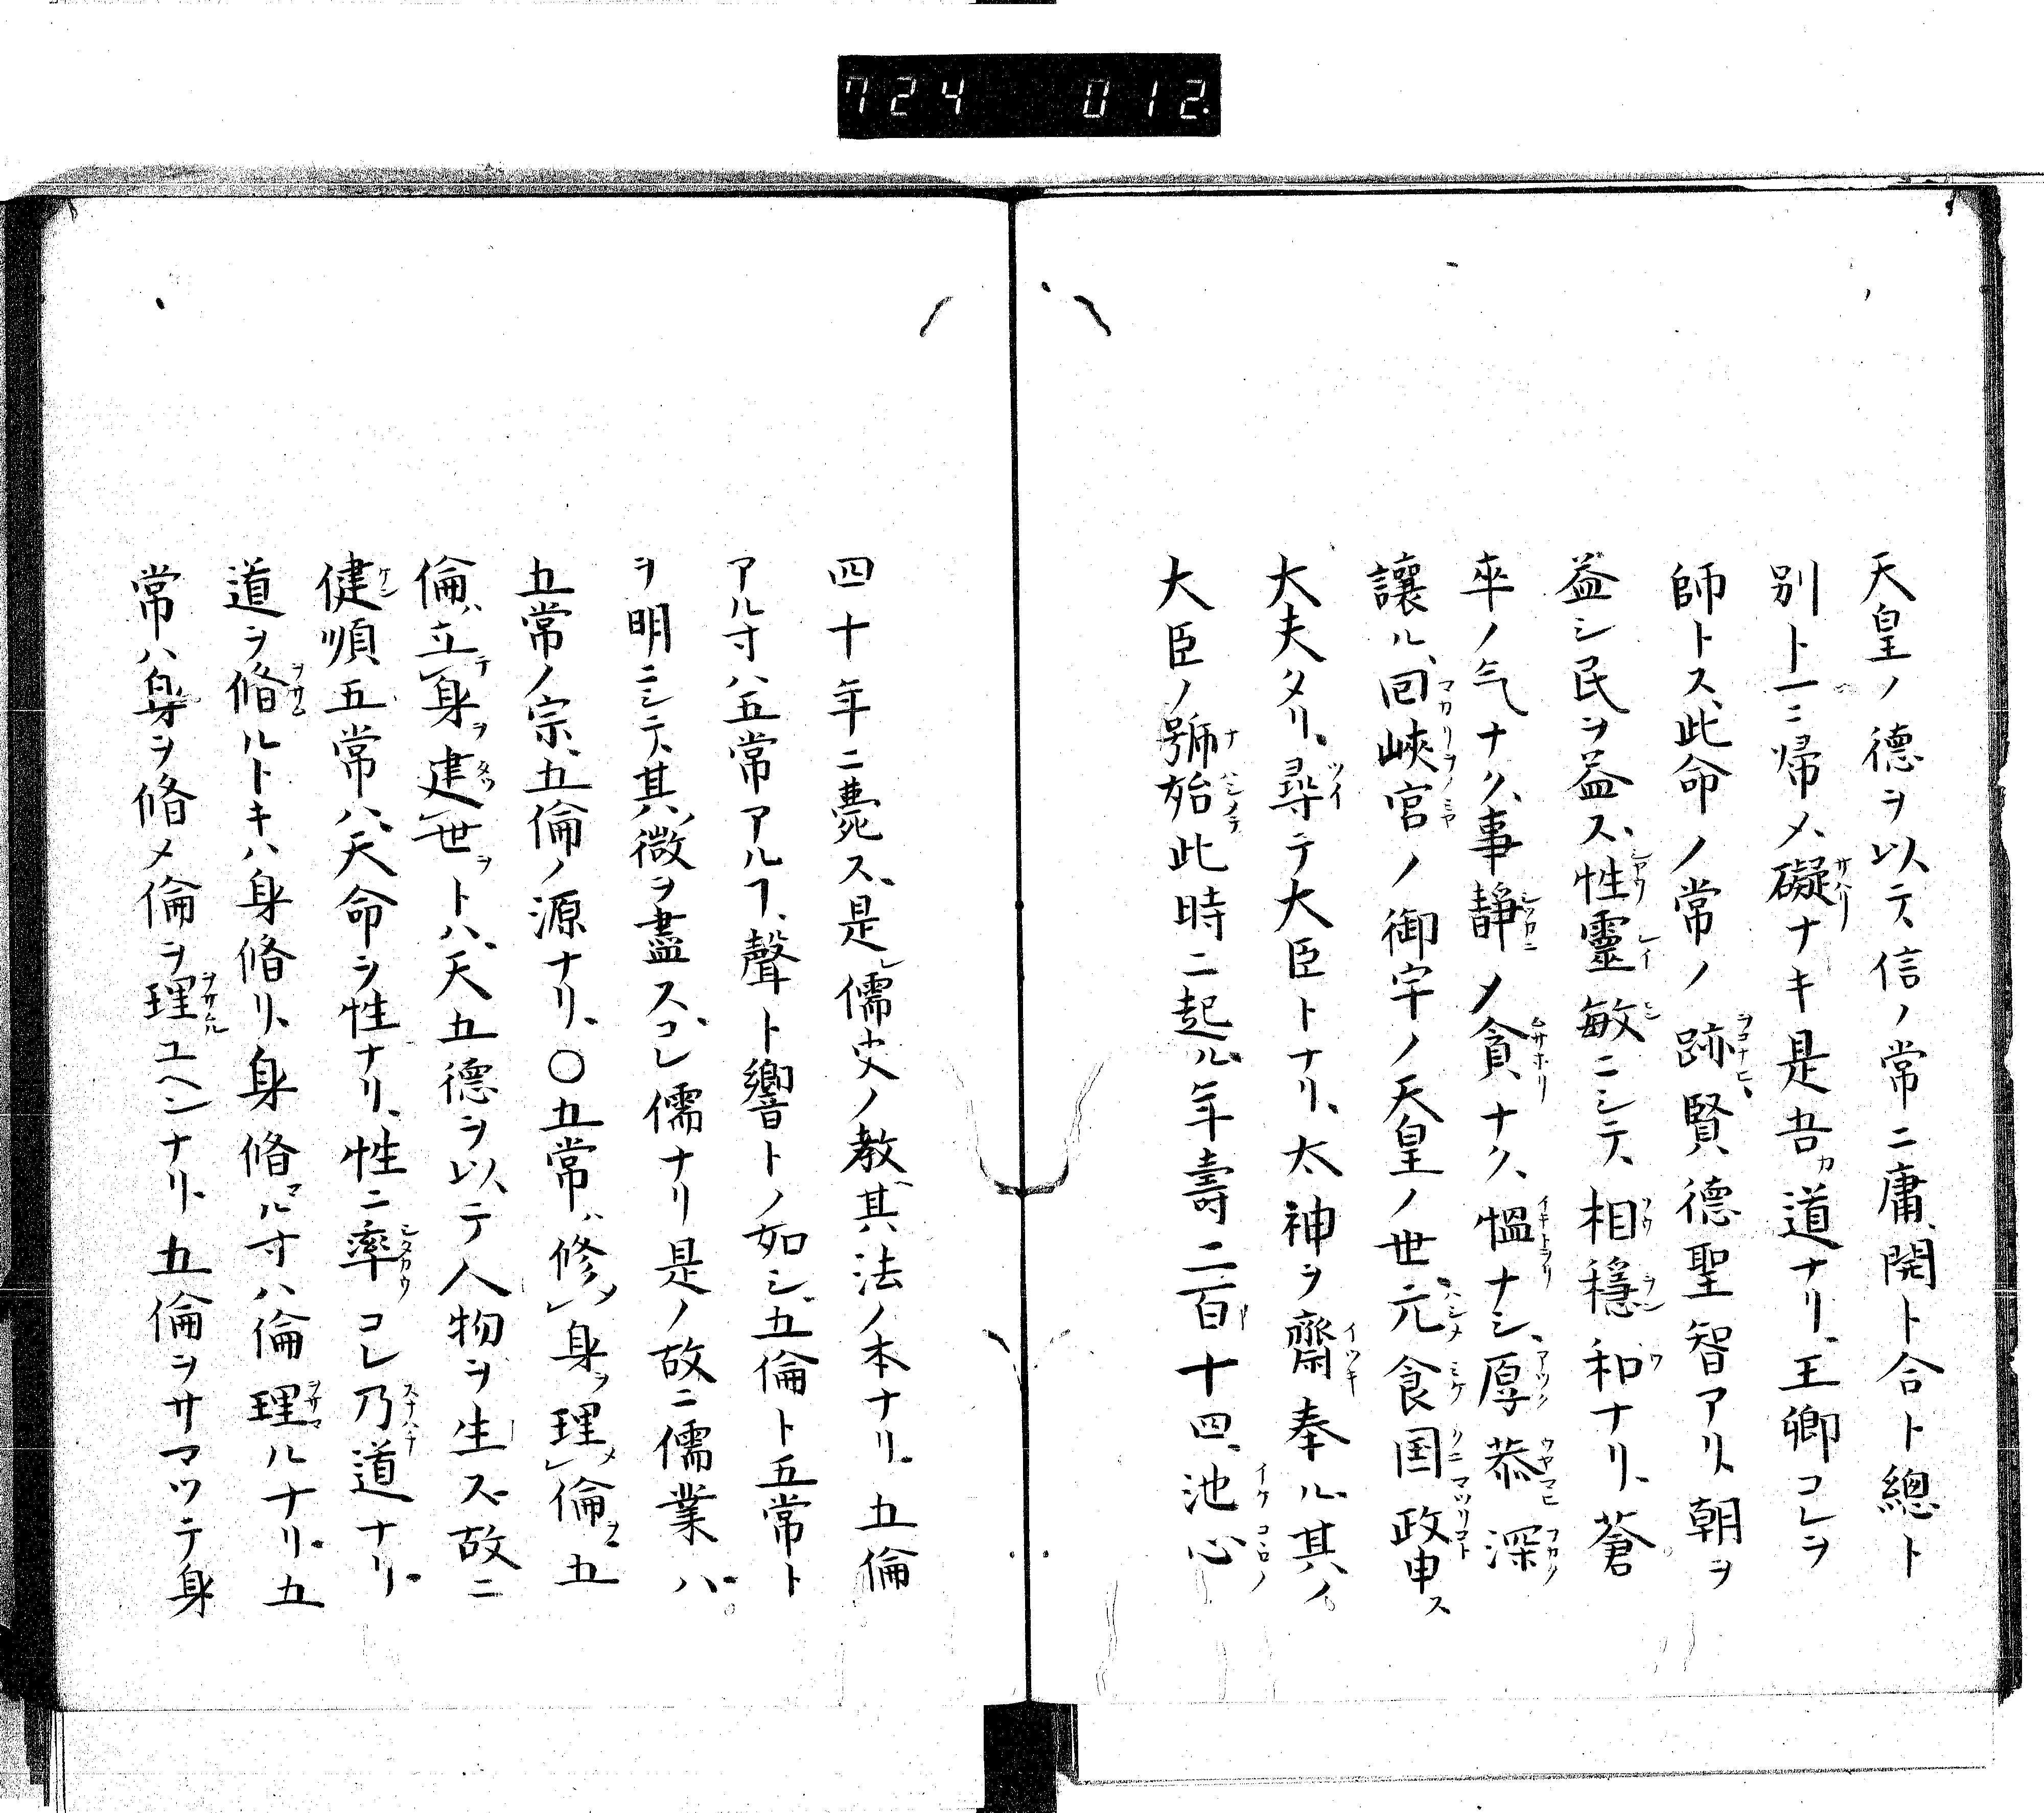 724 012
天皇ノ徳ヲ以テ信ノ常ニ庸、開ト合ト總ト
別ト一ニ帰メ、礙ナキ是吾カ道ナリ、王卿コレヲ
師トス、此命ノ常ノ跡賢、徳聖智アリ、朝ヲ
益シ民ヲ益ス、性靈敏ニシテ、相穏和ナリ、蒼
卒ノ气ナク、事静メ貪ナク、愠ナシ、厚恭深
讓ル、回峽宮ノ御宇ノ天皇ノ世元食国政申ス
大夫タリ、尋テ大臣トナリ、太神ヲ齋奉ル、其ノ
大臣ノ號始此時ニ起ル、年壽二百十四、池心
四十年ニ薨ス、是レ儒史ノ教、其法ノ本ナリ、五倫
アル寸ハ五常アルヿ、聲ト響トノ如シ、五倫ト五常ト
ヲ明ニシテ、其微ヲ盡ス、コレ儒ナリ是ノ故ニ儒業ハ、
五常ノ宗、五倫ノ源ナリ、〇五常ハ修メレ身ヲ理メレ倫ヲ、五
倫ハ立テレ身ヲ建ツレ世ヲトハ、天五徳ヲ以テ人物ヲ生ズ故ニ
健順五常ハ、天命ヲ性ナリ、性ニ率コレ乃道ナリ、
道ヲ脩ルトキハ身脩リ、身脩マル寸ハ倫理ルナリ、五
常ハ身ヲ脩メ倫ヲ理ユヘンナリ、五倫ヲサマツテ身